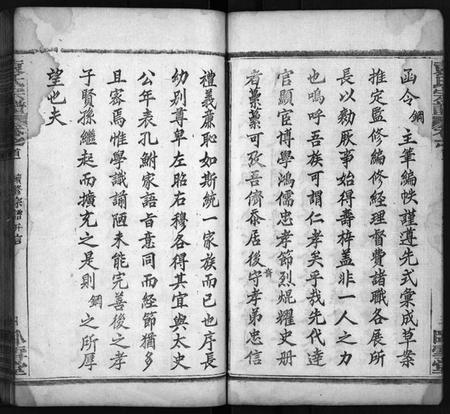 函令 鋼 主筆編帙謹遵先式彙成草案
推定監修編修經理督費諸職各展所
長以勷厥事始得壽梓蓋非一人之力
也嗚呼吾族可謂仁孝矣乎哉先代達
官顯宦博學鴻儒忠孝節烈焜耀史册
者纍纍可攷吾儕忝居後守孝弟忠信
禮義廉恥如斯統一家族而已也序長
幼別尊卑左昭右穆各得其宜與太史
公年表孔鮒家語旨意同而經節猶多
且容焉惟學識謭陋未能完善後之孝
子賢孫繼起而擴充之是則 鋼 之所厚
望也夫